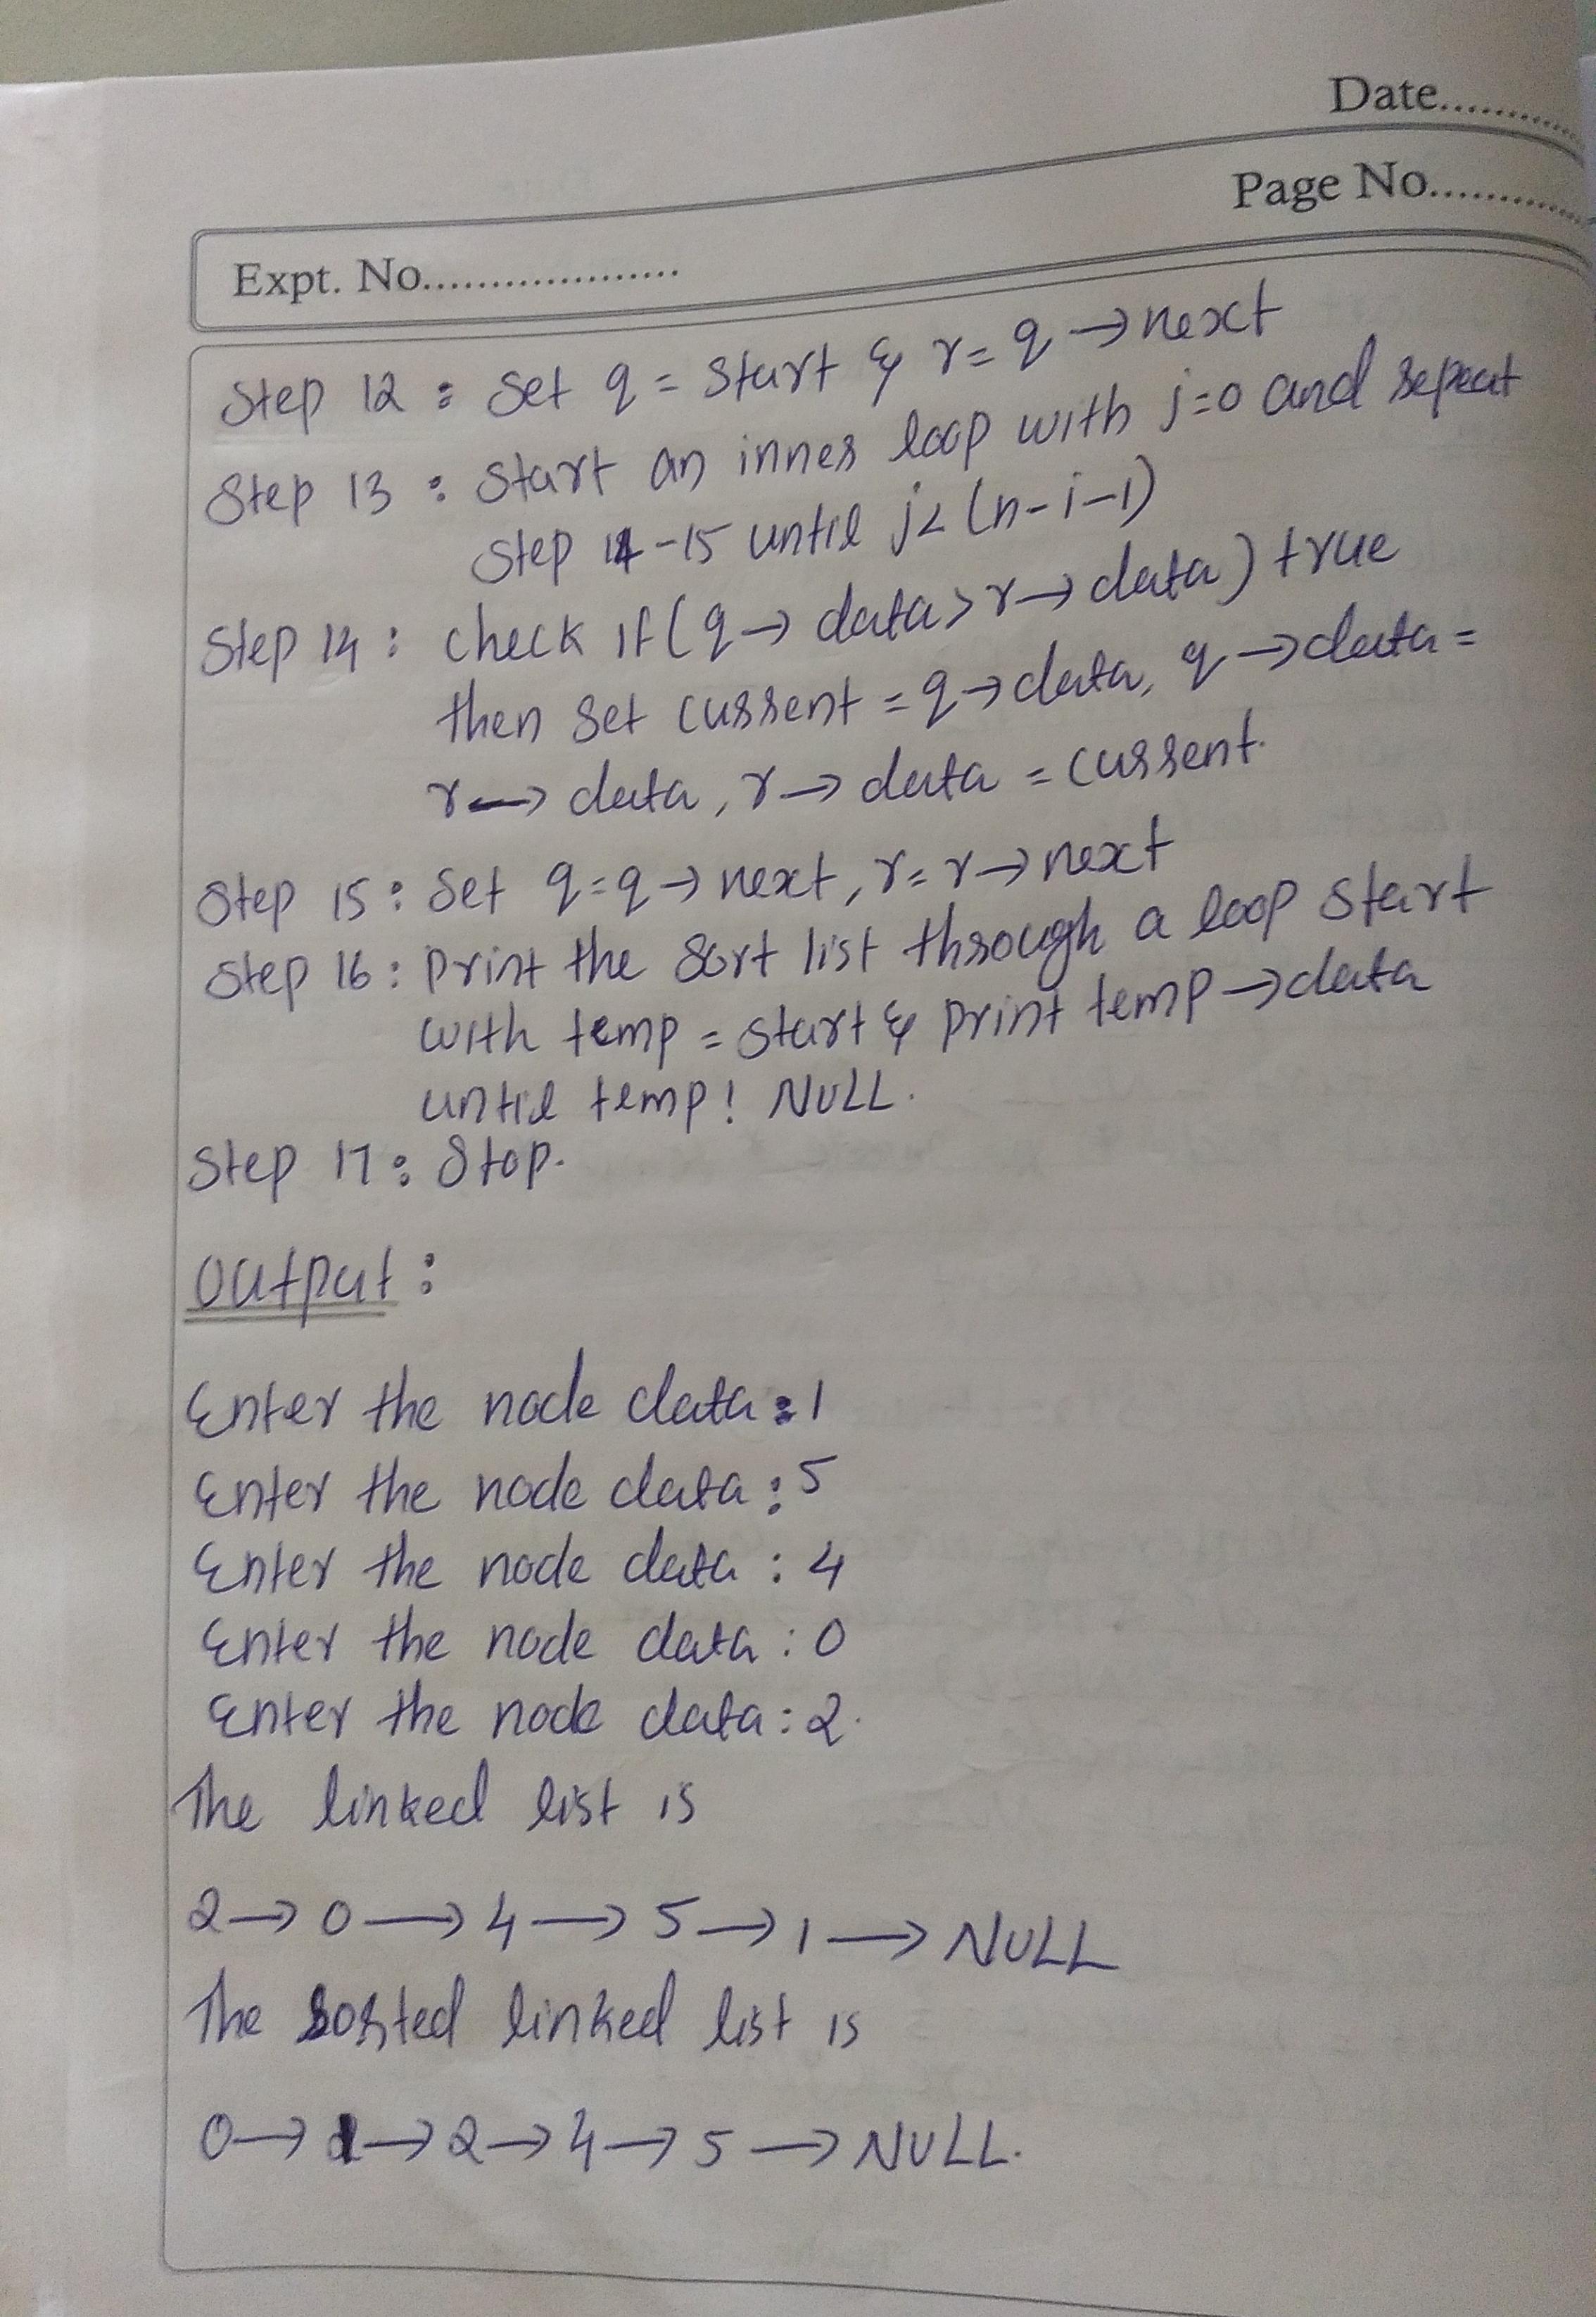 Date..........
Page No..........
Expt. No....................
Step 12 : Set q = start & r = q → next
Step 13 : Start an inner loop with j=0 and repeat
step 14-15 until j< (n-i-1)
Step 14 : check if (q → data > r → data) true
then set current = q → data, q → data =
r → data, r → data = current.
Step 15 : Set q = q → next, r = r → next
Step 16 : print the sort list through a loop start
with temp = start & print temp → data
until temp! NULL.
Step 17 : Stop.
Output :
Enter the node data : 1
Enter the node data : 5
Enter the node data : 4
Enter the node data : 0
Enter the node data : 2.
The linked list is
2 → 0 → 4 → 5 → 1 → NULL
The sorted linked list is
0 → 1 → 2 → 4 → 5 → NULL.